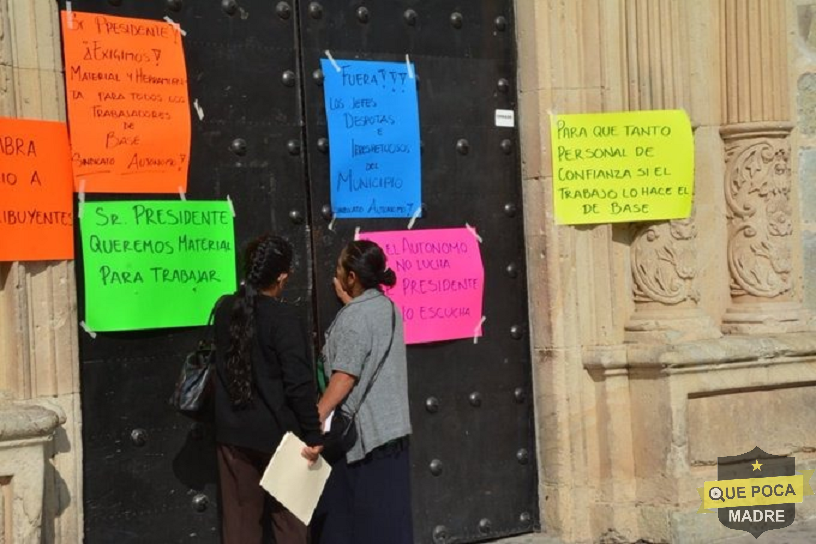 BRA
IO A
IBUYENTES
Sr PRESIDENTE!
¡EXIGIMOS!
MATERIAL Y HERRAMIEN
TA PARA TODOS LOS
TRABAJADORES
DE
BASE
SINDICATO AUTONOMO!
SR. PRESIDENTE
QUEREMOS MATERIAL
PARA TRABAJAR
FUERA!!!
LOS JEFES
DESPOTAS
E
IRRESPETUOSOS
DEL
MUNICIPIO
SINDICATO AUTONOMO!
EL AUTONOMO
NO LUCHA
PRESIDENTE
NO ESCUCHA
PARA QUE TANTO
PERSONAL DE
CONFIANZA SI EL
TRABAJO LO HACE EL
DE BASE
QUE POCA
MADRE